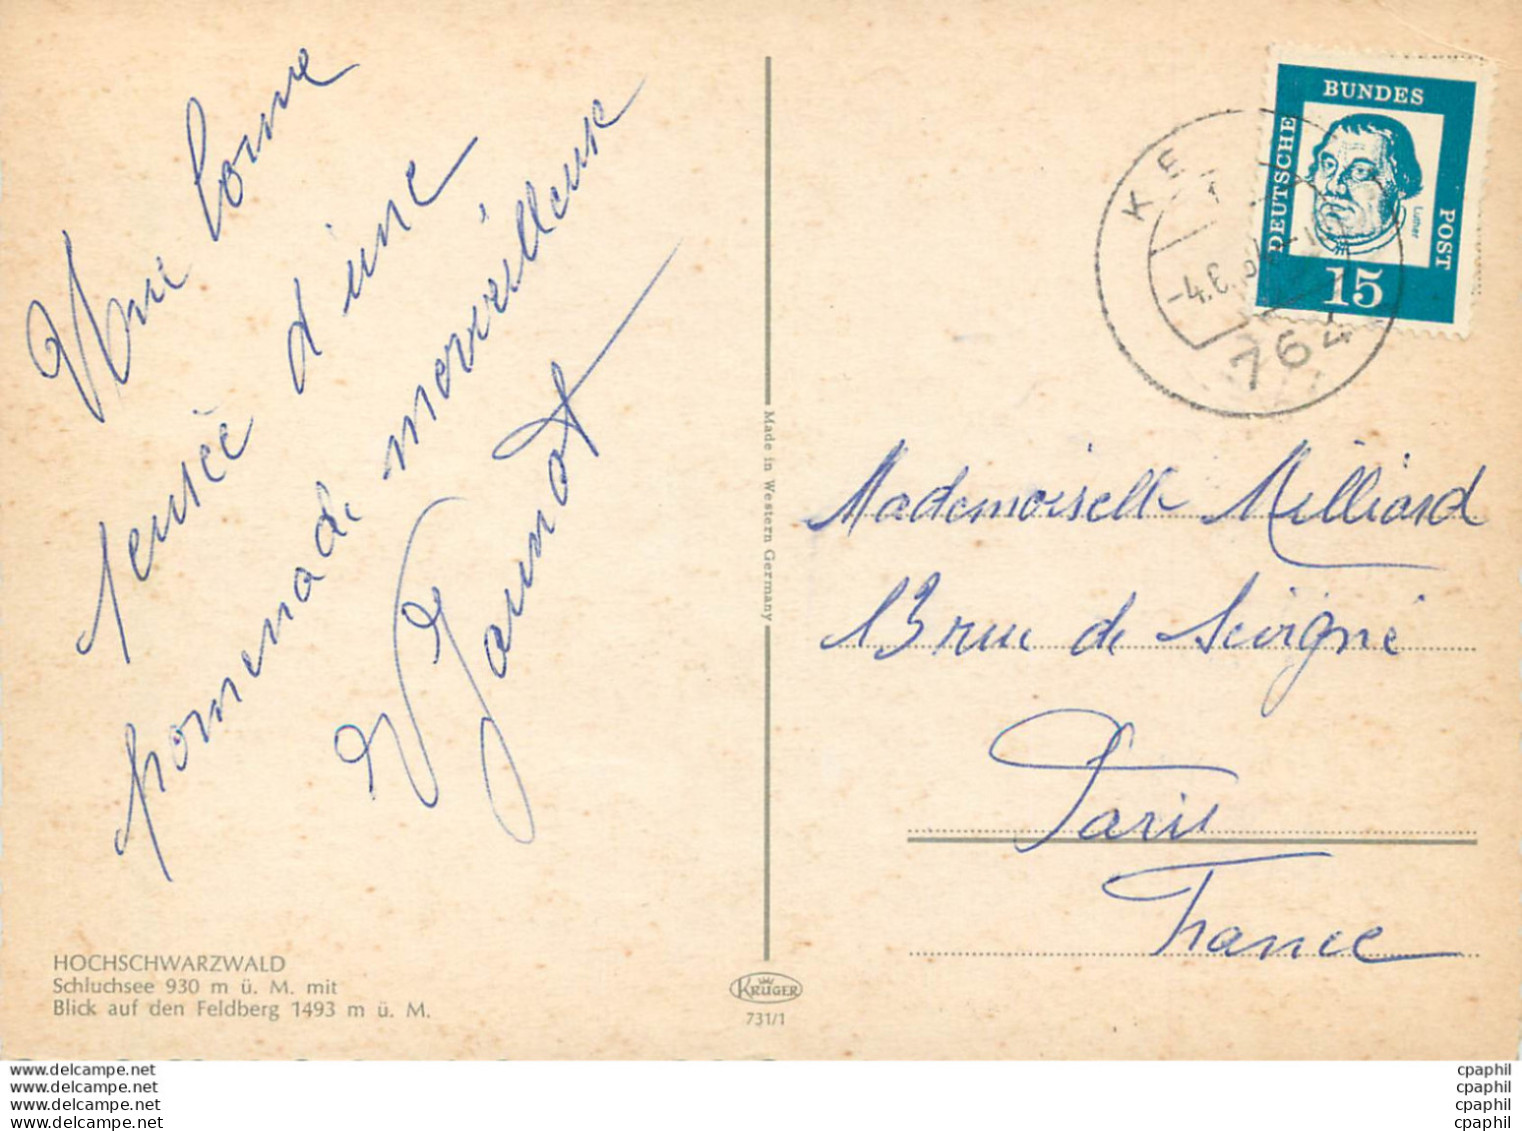 Une bonne
pensée d'une
promenade merveilleuse
HOCHSCHWARZWALD
Schluchsee 930 m ü. M. mit
Blick auf den Feldberg 1493 m ü. M.
Made in Western Germany
KRÜGER
731/1
DEUTSCHE
BUNDES
POST
Luther
15
-4.6.64
764
Mademoiselle Milliard
13 rue de Sévigné
Paris
France
www.delcampe.net
www.delcampe.net
www.delcampe.net
www.delcampe.net
cpaphil
cpaphil
cpaphil
cpaphil